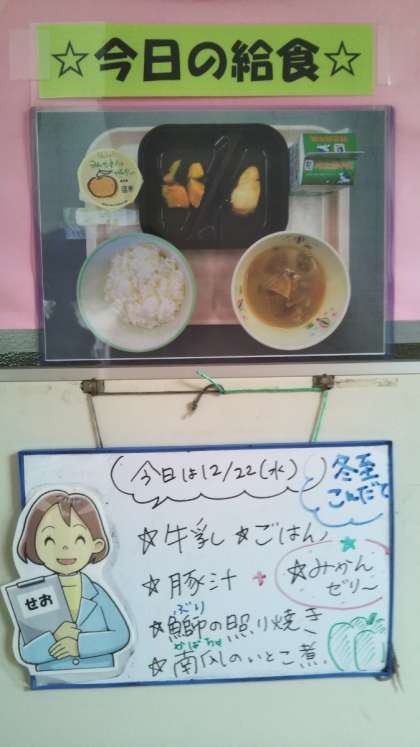 ☆今日の給食☆
今日は12/22(水)
冬至
こんだて
☆牛乳 ☆ごはん
☆豚汁
☆みかん
ゼリー
ぶり
☆鰤の照り焼き
かぼちゃ
☆南瓜のいとこ煮
せお